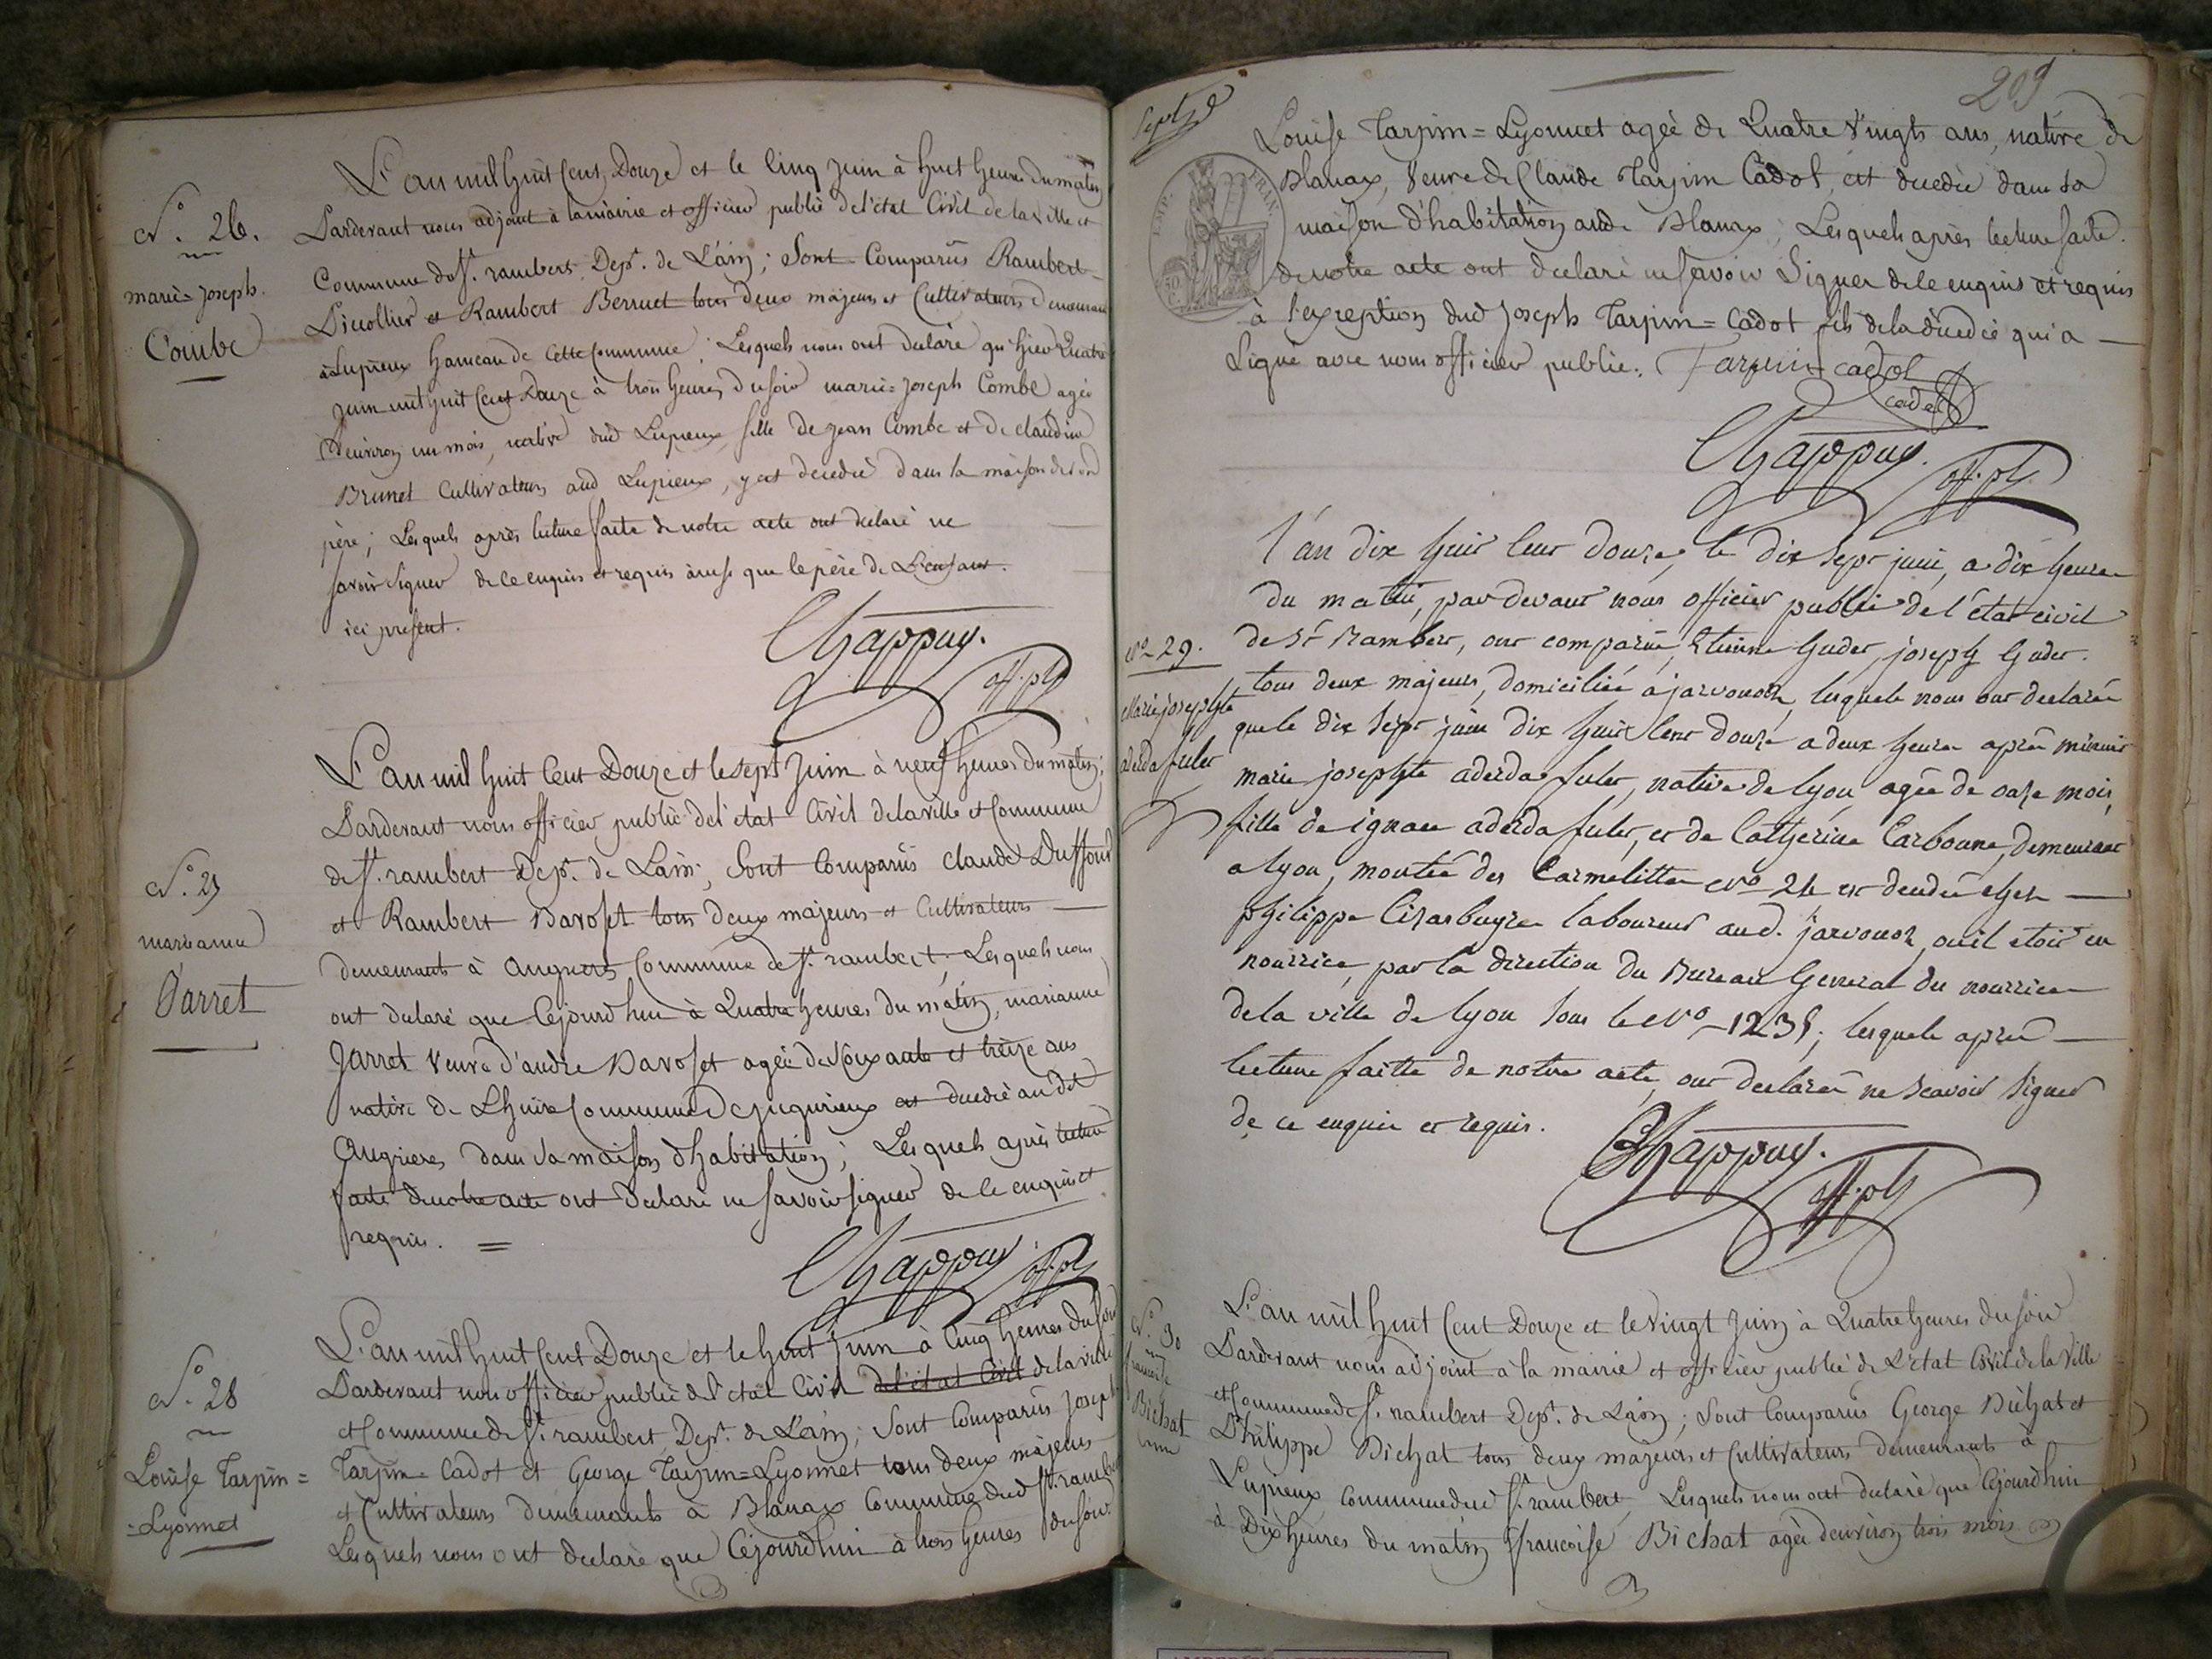 L'an mil huit Cent Douze et le Cinq juin à huit heures du matin
Pardevant nous adjoint à la mairie et officier public de l'état Civil de la ville et
N.o 26.
Commune de St. rambert Dept. de L'ain; Sont Comparus Rambert
marie=joseph
et Rambert Bernet tous deux majeurs et Cultivateurs demeurant
Combe
à Lupieux hameau de Cette Commune; Lesquels nous ont declaré qu'hier Quatre
juin mil huit Cent Douze à trois heures du soir marie=joseph Combe agée
d'environ un mois, native dud Lupieux, fille de jean Combe et de claudine
Brunet Cultivateurs aud Lupieux, y est decedée dans la maison de son
père; Lesquels après lecture faite de notre acte ont declaré ne
savoir signer de ce enquis et requis ainsi que le père de L'enfant
ici present.
Chappuy.
off. pb
L'an mil huit Cent Douze et le sept juin à neuf heures du matin;
Pardevant nous officier public de l'état Civil de la ville et Commune
de St. rambert Dept. de L'ain; Sont Comparus claude Duffour
N.o 27
et Rambert Davoset tous deux majeurs et Cultivateurs
marianne
demeurants à Angrieres Commune de St. rambert; Lesquels nous
Jarret
ont declaré que Cejourd'hui à Quatre heures du matin, marianne
Jarret veuve d'andré Davoset agée de soixante et treize ans
native de Lhuire Commune de jujurieux est decedée audit
Angrieres dans sa maison d'habitation; Lesquels après lecture
faite de notre acte ont declaré ne savoir signer de ce enquis et
requis. =
Chappuy off. pb
L'an mil huit Cent Douze et le huit juin à Cinq heures du soir
Pardevant nous officier public de l'état Civil de l'état Civil de la ville
N.o 28
et Commune de St. rambert Dept. de L'ain; Sont Comparus joseph
Louise Tarpin=
Tarpin=Cadot et George Tarpin=Lyonnet tous deux majeurs
=Lyonnet
et Cultivateurs demeurants à Blanax Commune dud St. rambert
Lesquels nous ont declaré que Cejourd'hui à trois heures du soir
209
Septe
Louise Tarpin=Lyonnet agée de Quatre Vingts ans, native de
Blanax, Veuve de Claude Tarpin Cadot, est decedée dans sa
EMP. FRAN.
maison d'habitation aud. Blanax; Lesquels après lecture faite
de notre acte ont declaré ne savoir Signer de ce enquis et requis
50
à l'exception dud joseph Tarpin=Cadot fils de la decedée qui a
signé avec nous officier public. Tarpin cadot
cadet
Chappuy.
off. pb
l'an dix huit cent douze, le dix sept juin, a dix heures
du matin, par devant nous officier public de l'état civil
de St Rambert, ont comparu, Etienne Guder, joseph Guder
No 29.
tous deux majeurs, domiciliés a javornoz, lesquels nous ont declarés
Marie josephte
que le dix sept juin dix huit cent douze a deux heures après minuit
aderdafuler
marie josephte aderdafuler, native de lyon agée de onze mois,
fille de ignace aderdafuler, et de Catherine Carbonne, demeurant
a lyon, montée des Carmelittes No 24 est decedée chez
philippe Cizarbuyre laboureur aud. javornoz, ou il etoit en
nourrice, par la direction du Bureau General des nourrices
de la ville de lyon sous le No 1235; lesquels après
lecture faitte de notre acte, ont declarés ne scavoir signer
de ce enquis et requis.
Chappuy.
off. pb
L'an mil huit Cent Douze et le vingt juin à Quatre heures du soir
N.o 30
Pardevant nous adjoint à la mairie et officier public de L'état Civil de la Ville
francoise
et Commune de St. rambert Dept. de L'ain; Sont Comparus George Bichat et
Bichat
Philippe Bichat tous deux majeurs et Cultivateurs demeurants à
Lupieux Commune dud St. rambert, Lesquels nous ont declaré que Cejourd'hui
à Dix heures du matin francoise Bichat agée d'environ trois mois